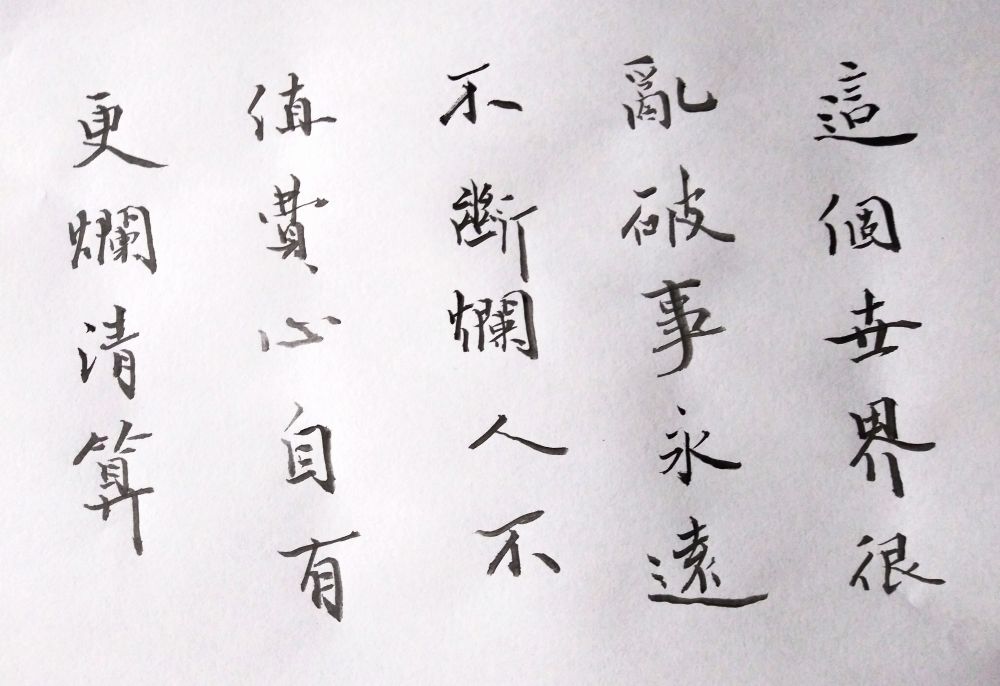 這個世界很
亂破事永遠
不斷爛人不
值費心自有
更爛清算